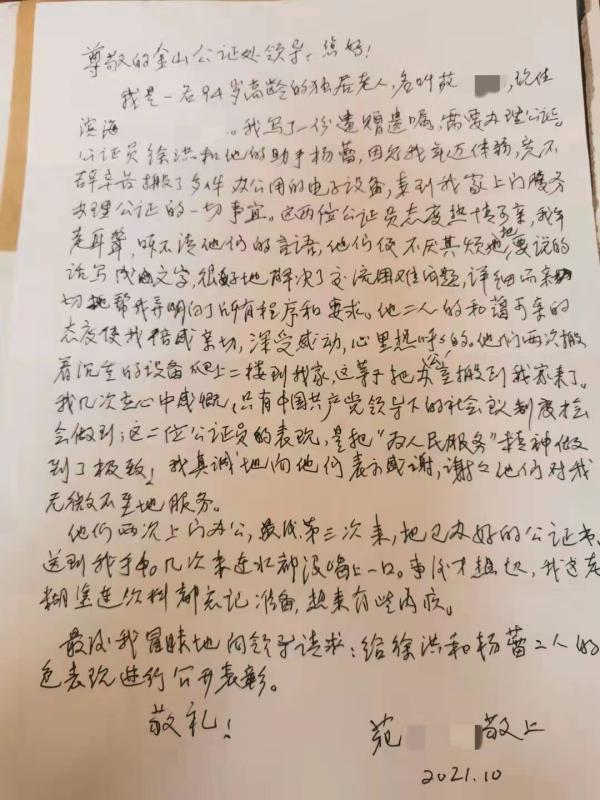 尊敬的金山公证处领导：您好！
我是一名94岁高龄的独居老人，名叫苑　，现住
滨海　。我写了一份遗赠遗嘱，需要办理公证。
公证员徐洪和他的助手杨蕾，因为我年迈体弱，竟不
辞辛苦搬了多件办公用的电子设备，来到我家上门服务
办理公证的一切事宜。这两位公证员态度热情可亲，我年
老耳聋，听不清他们的言语，他们便不厌其烦地把要说的
话写成文字，很好地解决了交流困难问题，详细而亲
切地帮我弄明白了所有程序和要求。他二人的和蔼可亲的
态度使我倍感亲切，深受感动，心里热呼呼的。他们两次搬
着沉重的设备爬上二楼到我家，这等于把办公室搬到我家来了。
我几次在心中感慨，只有中国共产党领导下的社会主义制度才
会做到；这二位公证员的表现，是把“为人民服务”精神做
到了极致！我真诚地向他们表示感谢，谢谢他们对我
无微不至地服务。
他们两次上门办公，最后第三次来，把已办好的公证书
送到我手中。几次来连水都没喝上一口。事后才想起，我老年
糊涂连饮料都忘记准备，想来有些内疚。
最后我冒昧地向领导请求：给徐洪和杨蕾二人的
色表现进行公开表彰。
敬礼！
苑　敬上
2021.10